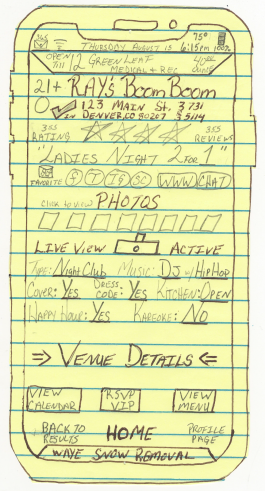 75°
THURSDAY AUGUST 13 6:15pm 100%
OPEN 7/11 12 GREEN LEAF
MEDICAL & REC
21+ RAYS BOOM BOOM
123 MAIN ST.
IN DENVER, CO 80207
RATING REVIEWS
"LADIES NIGHT 2 FOR 1"
FAVORITE F T IG SC WWW CHAT
CLICK to VIEW PHOTOS
LIVE VIEW ACTIVE
TYPE: Night Club MUSIC: DJ w/ HIP HOP
COVER: YES DRESS CODE: YES KITCHEN: OPEN
HAPPY HOUR: YES KAREOKE: NO
VENUE DETAILS
VIEW CALENDAR RSVP VIP VIEW MENU
BACK TO RESULTS HOME PROFILE PAGE
WAYE SNOW REMOVAL